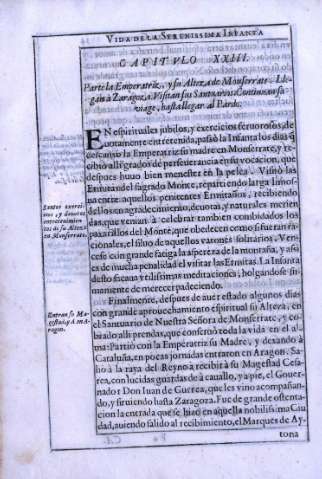 VIDA DE LA SERENISSIMA INFANTA
CAPITVLO XXIII.
Parte la Emperatriz, y su Alteza de Monserrate. Lle-
gan à Zaragoza, Visitan sus Santuarios. Continuan su
viage, hasta llegar al Pardo.
EN espirituales jubilos, y exercicios feruorosos, de-
uotamente entretenida, passò la Infanta los dias q̃
descansò la Emperatriz su madre en Monserrate, y re-
cibiò alli grados de perseuerancia en su vocacion, que
despues huuo bien menester en la pelea. Visitò las
Ermitas del sagrado Monte, repartiendo larga limos-
na entre aquellos penitentes Ermitaños, recibiendo
dellos con agradecimiento, deuotas, y naturales merien-
das, que venian à celebrar tambien combidados los
paxarillos del Monte, que obedecen como si fueran ra-
cionales, el siluo de aquellos varones solitarios. Ven-
cese con grande fatiga la aspereza de la montaña, y assi
es de mucha penalidad el visitar las Ermitas. La Infanta
desto secaua vtilissimas meditaciones, holgandose su-
mamente de merecer padeciendo.
Finalmente, despues de auer estado algunos dias
con grande aprouechamiento espiritual su Alteza, en
el Santuario de Nuestra Señora de Monserrate, y co-
brado alli prendas, que conseruò toda la vida en el al-
ma: Partiò con la Emperatriz su Madre, y dexando à
Cataluña, en pocas jornadas entraron en Aragon. Sa-
liò à la raya del Reyno a recibir à su Magestad Cesa-
rea, con lucidas guardas de à cauallo, y a pie, el Gouer-
nador Don Iuan de Gurrea, que les vino acompañan-
do, y siruiendo hasta Zaragoza. Fue de grande ostenta-
cion la entrada que se hizo en aquella nobilissima Ciu-
dad, auiendo salido al recibimiento, el Marques de Ay-
tona
Santos exerci-
cios, y deuotos
entretenimien-
tos de su Alteza
en Monserrate.
Entran su Ma-
gestad, y A. en A-
ragon.